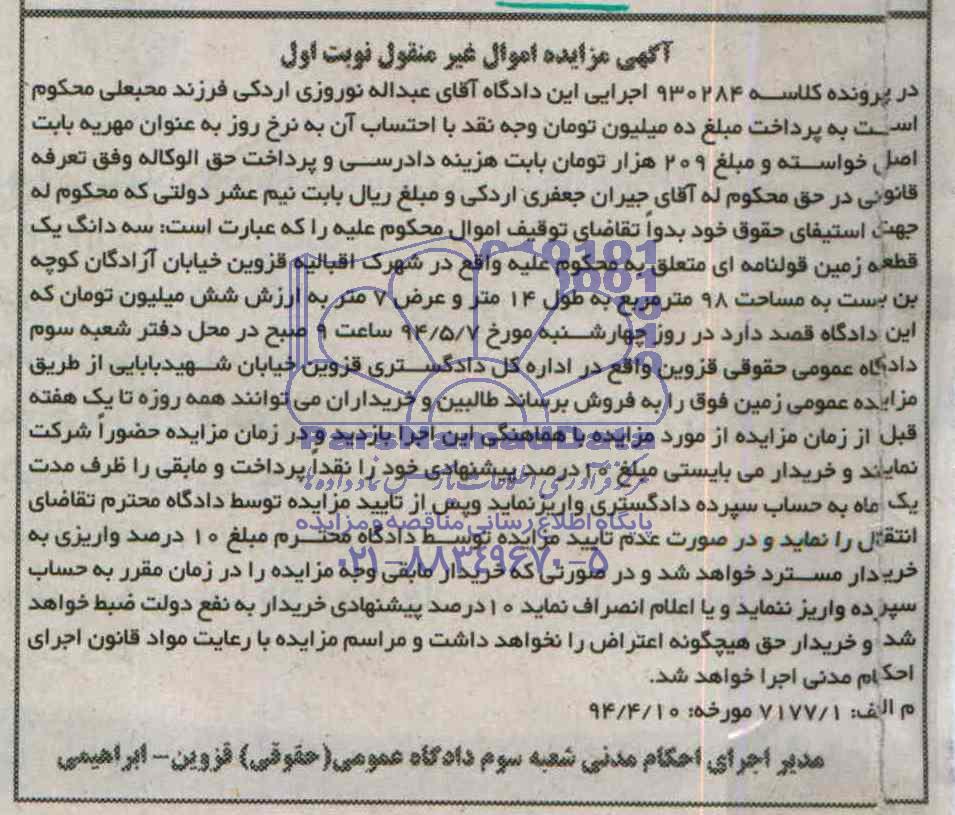 آگهی مزایده اموال غیر منقول نوبت اول
در پرونده کلاسه ۹۳۰۲۸۴ اجرایی این دادگاه آقای عبداله نوروزی اردکی فرزند محبعلی محکوم
است به پرداخت مبلغ ده میلیون تومان وجه نقد با احتساب آن به نرخ روز به عنوان مهریه بابت
اصل خواسته و مبلغ ۲۰۹ هزار تومان بابت هزینه دادرسی و پرداخت حق الوکاله وفق تعرفه
قانونی در حق محکوم له آقای جیران جعفری اردکی و مبلغ ریال بابت نیم عشر دولتی که محکوم له
جهت استیفای حقوق خود بدواً تقاضای توقیف اموال محکوم علیه را که عبارت است: سه دانگ یک
قطعه زمین قولنامه ای متعلق به محکوم علیه واقع در شهرک اقبالیه قزوین خیابان آزادگان کوچه
بن بست به مساحت ۹۸ مترمربع به طول ۱۴ متر و عرض ۷ متر به ارزش شش میلیون تومان که
این دادگاه قصد دارد در روز چهارشنبه مورخ ۹۴/۵/۷ ساعت ۹ صبح در محل دفتر شعبه سوم
دادگاه عمومی حقوقی قزوین واقع در اداره کل دادگستری قزوین خیابان شهیدبابایی از طریق
مزایده عمومی زمین فوق را به فروش برساند طالبین و خریداران می توانند همه روزه تا یک هفته
قبل از زمان مزایده از مورد مزایده با هماهنگی این اجرا بازدید و در زمان مزایده حضوراً شرکت
نمایند و خریدار می بایستی مبلغ ۱۰درصد پیشنهادی خود را نقداً پرداخت و مابقی را ظرف مدت
یک ماه به حساب سپرده دادگستری واریزنماید وپس از تایید مزایده توسط دادگاه محترم تقاضای
انتقال را نماید و در صورت عدم تایید مزایده توسط دادگاه محترم مبلغ ۱۰ درصد واریزی به
خریدار مسترد خواهد شد و در صورتی که خریدار مابقی وجه مزایده را در زمان مقرر به حساب
سپرده واریز ننماید و یا اعلام انصراف نماید ۱۰درصد پیشنهادی خریدار به نفع دولت ضبط خواهد
شد و خریدار حق هیچگونه اعتراض را نخواهد داشت و مراسم مزایده با رعایت مواد قانون اجرای
احکام مدنی اجرا خواهد شد.
م الف: ۷۱۷۷/۱ مورخه: ۹۴/۴/۱۰
مدیر اجرای احکام مدنی شعبه سوم دادگاه عمومی(حقوقی) قزوین- ابراهیمی
ParsNamadData
پایگاه اطلاع رسانی مناقصه و مزایده
۰۲۱-۸۸۳۴۹۶۷۰-۵